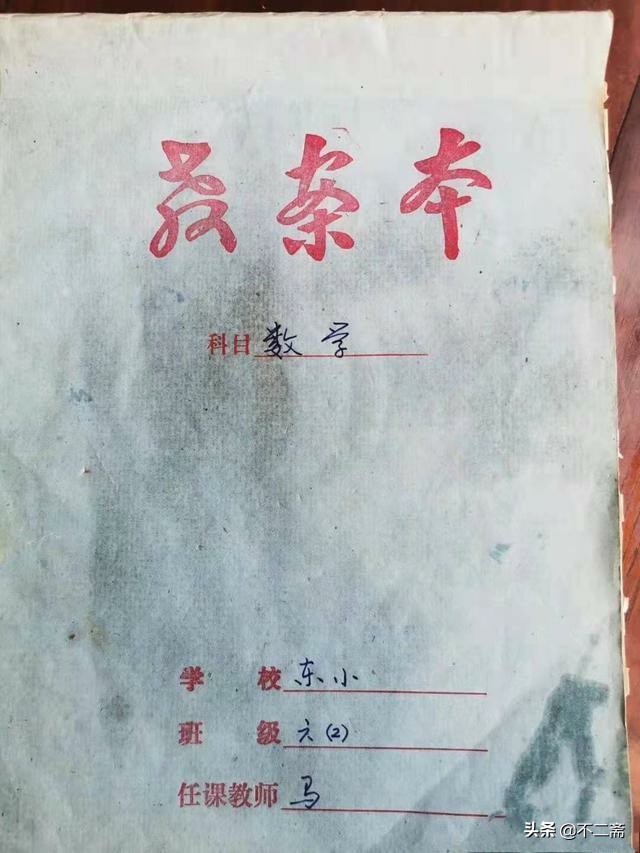 教案本
科目 数学
学校 东小
班级 六(2)
任课教师 马
头条 @不二斋